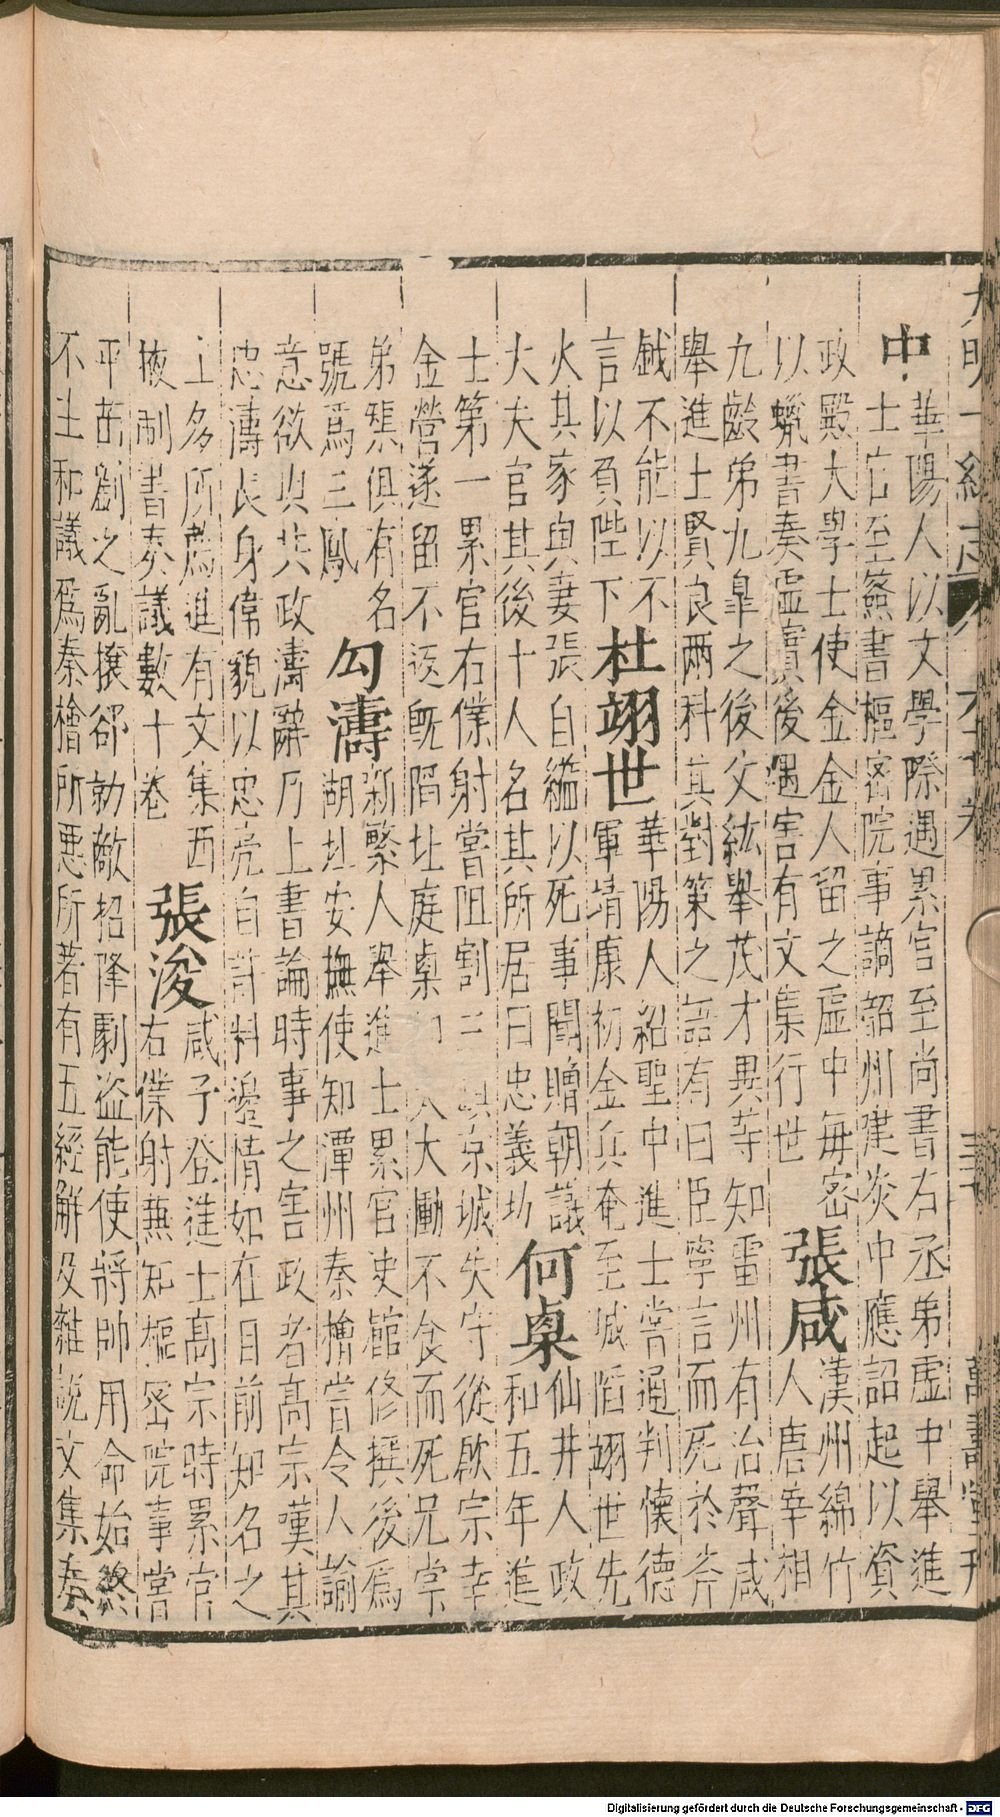 大明一統志 六十七卷 三十 萬壽堂刊
中
華陽人以文學際遇累官至尚書右丞弟虛中舉進
士官至簽書樞密院事謫韶州建炎中應詔起以資
政殿大學士使金金人留之虛中每密
以蠟書奏虛實後遇害有文集行世
張咸
漢州綿竹
人唐宰相
九齡弟九臯之後父紘舉茂才異等知雷州有治聲咸
舉進士賢良兩科其對策之語有曰臣寧言而死於斧
鉞不能以不
言以負陛下
杜翊世
華陽人紹聖中進士嘗通判懷德
軍靖康初金兵奄至城陷翊世先
火其家與妻張自縊以死事聞贈朝議
大夫官其後十人名其所居曰忠義坊
何㮚
仙井人政
和五年進
士第一累官右僕射嘗阻割三鎮京城失守從欽宗幸
金營遂留不返既陷北庭㮚仰天大慟不食而死兄棠
弟榘俱有名
號爲三鳳
勾濤
新繁人舉進士累官史館修撰後爲
湖北安撫使知潭州秦檜嘗令人諭
意欲與共政濤辭乃上書論時事之害政者高宗嘆其
忠濤長身偉貌以忠亮自許料邊情如在目前知名之
士多所薦進有文集西
掖制書奏議數十卷
張浚
咸子登進士高宗時累官
右僕射兼知樞密院事嘗
平苗劉之亂撓郤勍敵招降劇盜能使將帥用命始終
不主和議爲秦檜所惡所著有五經解及雜說文集奏
Digitalisierung gefördert durch die Deutsche Forschungsgemeinschaft - DFG